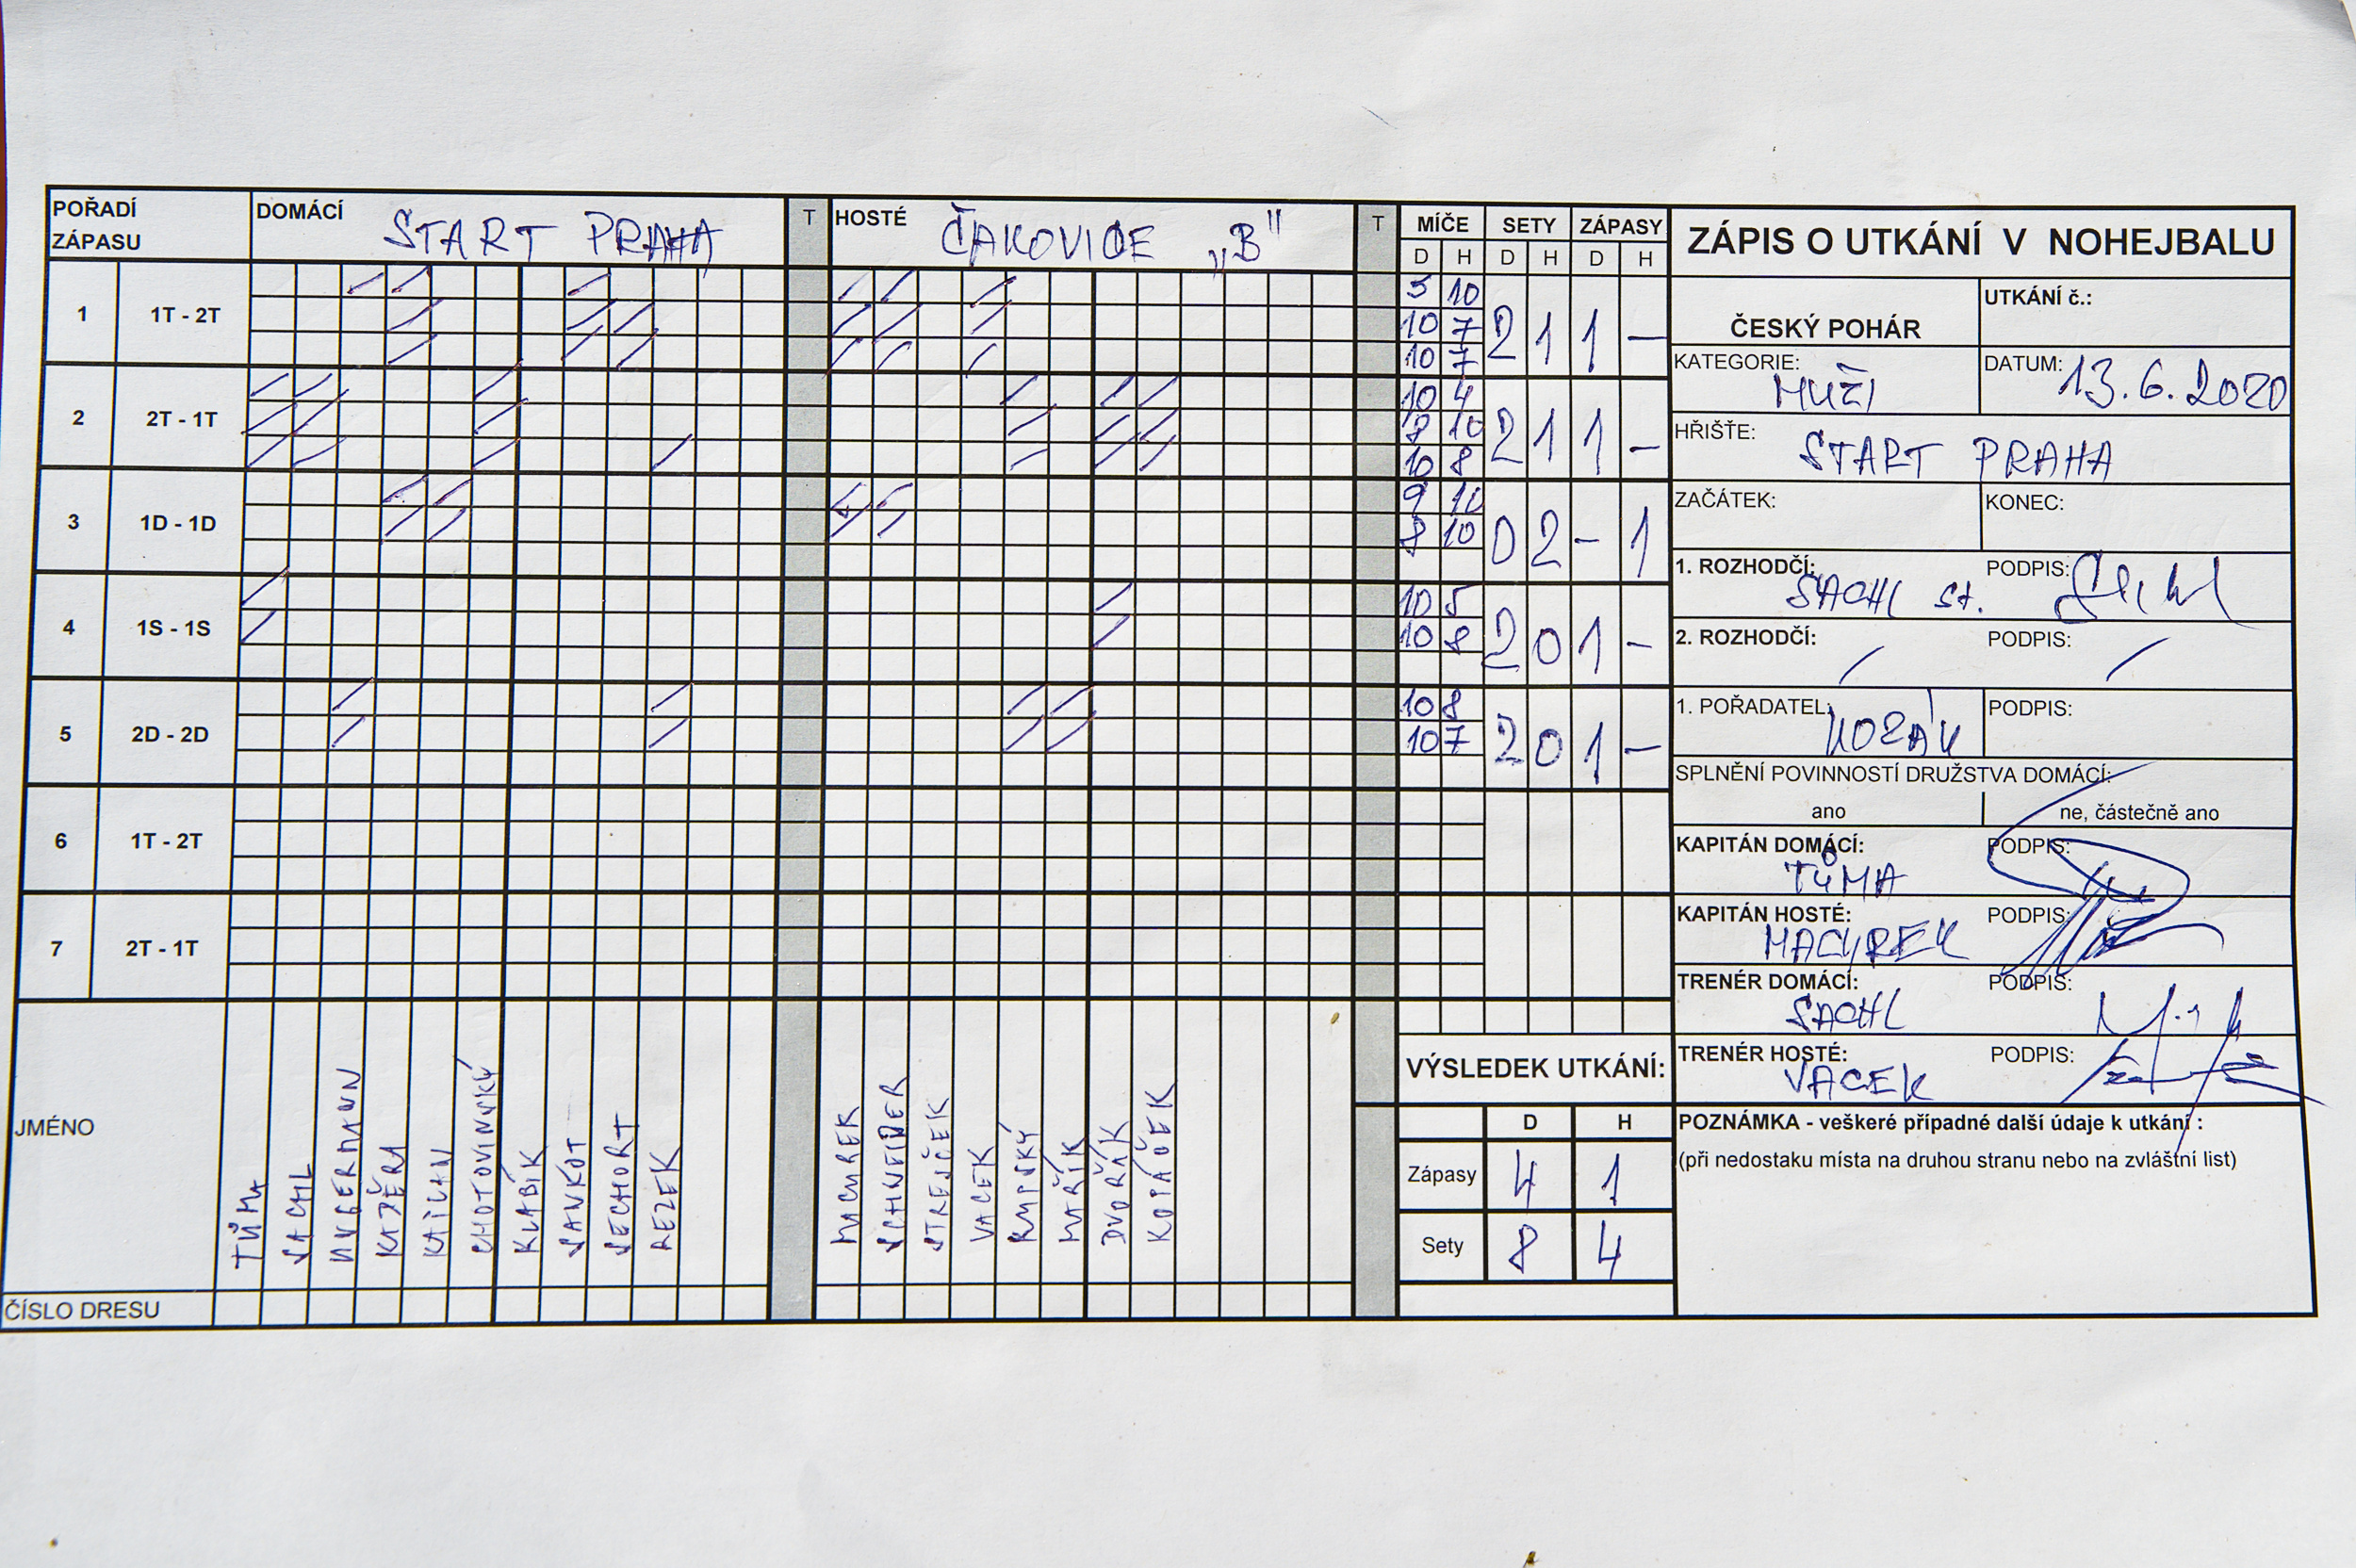 POŘADÍ ZÁPASU DOMÁCÍ START PRAHA T HOSTÉ ČAKOVICE „B" T MÍČE SETY ZÁPASY
D H D H D H
1 1T - 2T 5 10 2 1 1 –
10 7
10 7
2 2T - 1T 10 4 2 1 1 –
8 10
10 8
3 1D - 1D 9 10 0 2 – 1
8 10
4 1S - 1S 10 5 2 0 1 –
10 8
5 2D - 2D 10 8 2 0 1 –
10 7
6 1T - 2T
7 2T - 1T
JMÉNO
TŮMA
SACHL
UNGERMANN
KAŠČÁK
CHOTOVINSKÝ
KLABÍK
SANKOT
SECHORT
REZEK
MACUREK
SCHNEIDER
STREJČEK
VACEK
RYPSKÝ
MAŘÍK
DVOŘÁK
KOPÁČEK
ČÍSLO DRESU
VÝSLEDEK UTKÁNÍ:
D H
Zápasy 4 1
Sety 8 4
ZÁPIS O UTKÁNÍ V NOHEJBALU
ČESKÝ POHÁR
UTKÁNÍ č.:
KATEGORIE: MUŽI
DATUM: 13.6.2020
HŘIŠTĚ: START PRAHA
ZAČÁTEK: KONEC:
1. ROZHODČÍ: SACHL st. PODPIS:
2. ROZHODČÍ: PODPIS:
1. POŘADATEL: KOZÁK PODPIS:
SPLNĚNÍ POVINNOSTÍ DRUŽSTVA DOMÁCÍ:
ano ne, částečně ano
KAPITÁN DOMÁCÍ: TŮMA PODPIS:
KAPITÁN HOSTÉ: MACUREK PODPIS:
TRENÉR DOMÁCÍ: SACHL PODPIS:
TRENÉR HOSTÉ: VACEK PODPIS:
POZNÁMKA - veškeré případné další údaje k utkání :
(při nedostaku místa na druhou stranu nebo na zvláštní list)